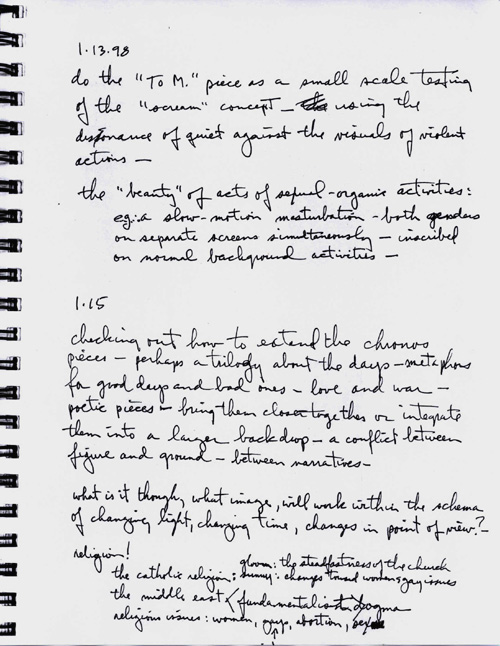 1.13.98
do the "To M." piece as a small scale testing
of the "scream" concept — using the
dissonance of quiet against the visuals of violent
actions —
the "beauty" of acts of sexual-organic activities:
eg: a slow-motion masturbation - both genders
on separate screens simultaneously — inscribed
on normal background activities —
1.15
checking out how to extend the chronos
pieces — perhaps a trilogy about the days — metaphors
for good days and bad ones — love and war —
poetic pieces — bring them closer together or integrate
them into a larger backdrop — a conflict between
figure and ground — between narratives —
what is it though, what image, will work within the schema
of changing light, changing time, changes in point of view? —
religion!
gloom: the steadfastness of the church
the catholic religion: sunny: changes toward women & gay issues
the middle east / fundamentalist dogma
religious issues: women, gays, abortion, sex